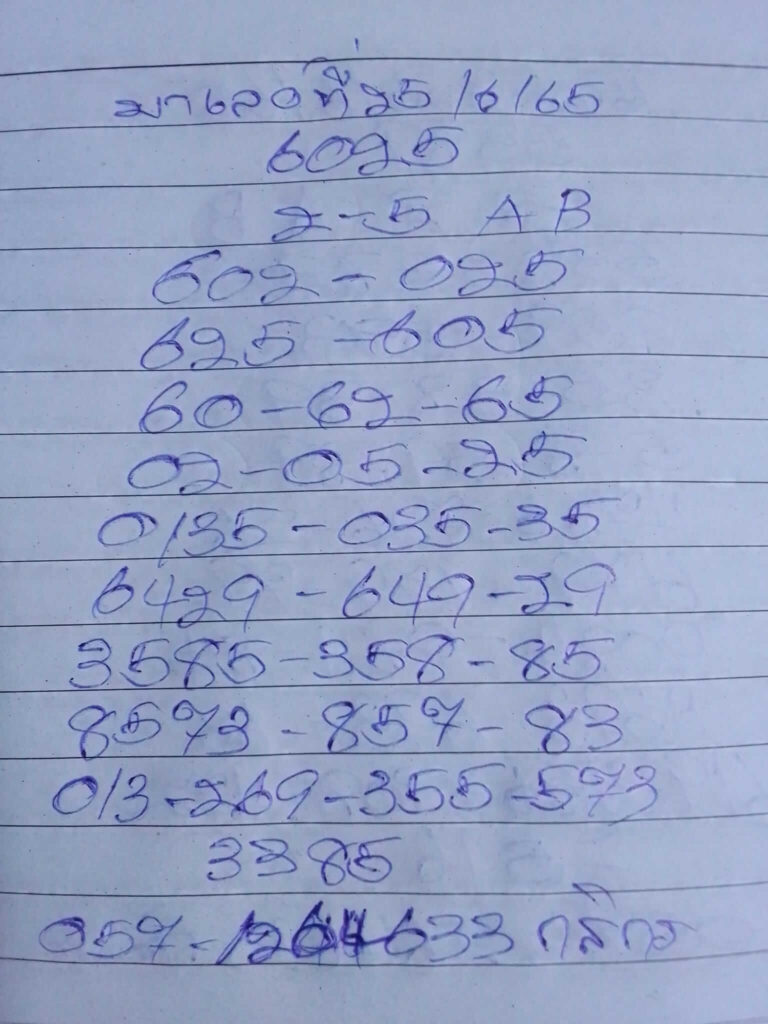 มาเลย์ที่ 25/6/65
6025
2-5 A B
602-025
625-605
60-62-65
02-05-25
0135-035-35
6429-649-29
3585-358-85
8573-857-83
013-269-355-573
3385
057- 633 กสิกร